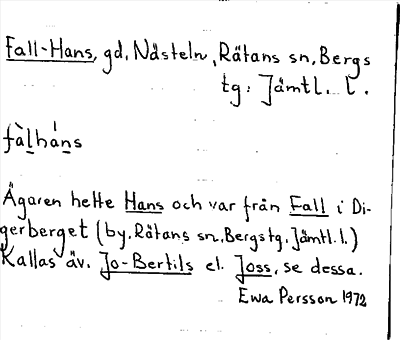 Fall-Hans, gd, Nästeln, Rätans sn, Bergs
tg, Jämtl. l.
fàlháns
Ägaren hette Hans och var från Fall i Di-
gerberget (by, Rätans sn, Bergs tg, Jämtl. l.)
Kallas äv. Jo-Bertils el. Joss, se dessa.
Ewa Persson 1972